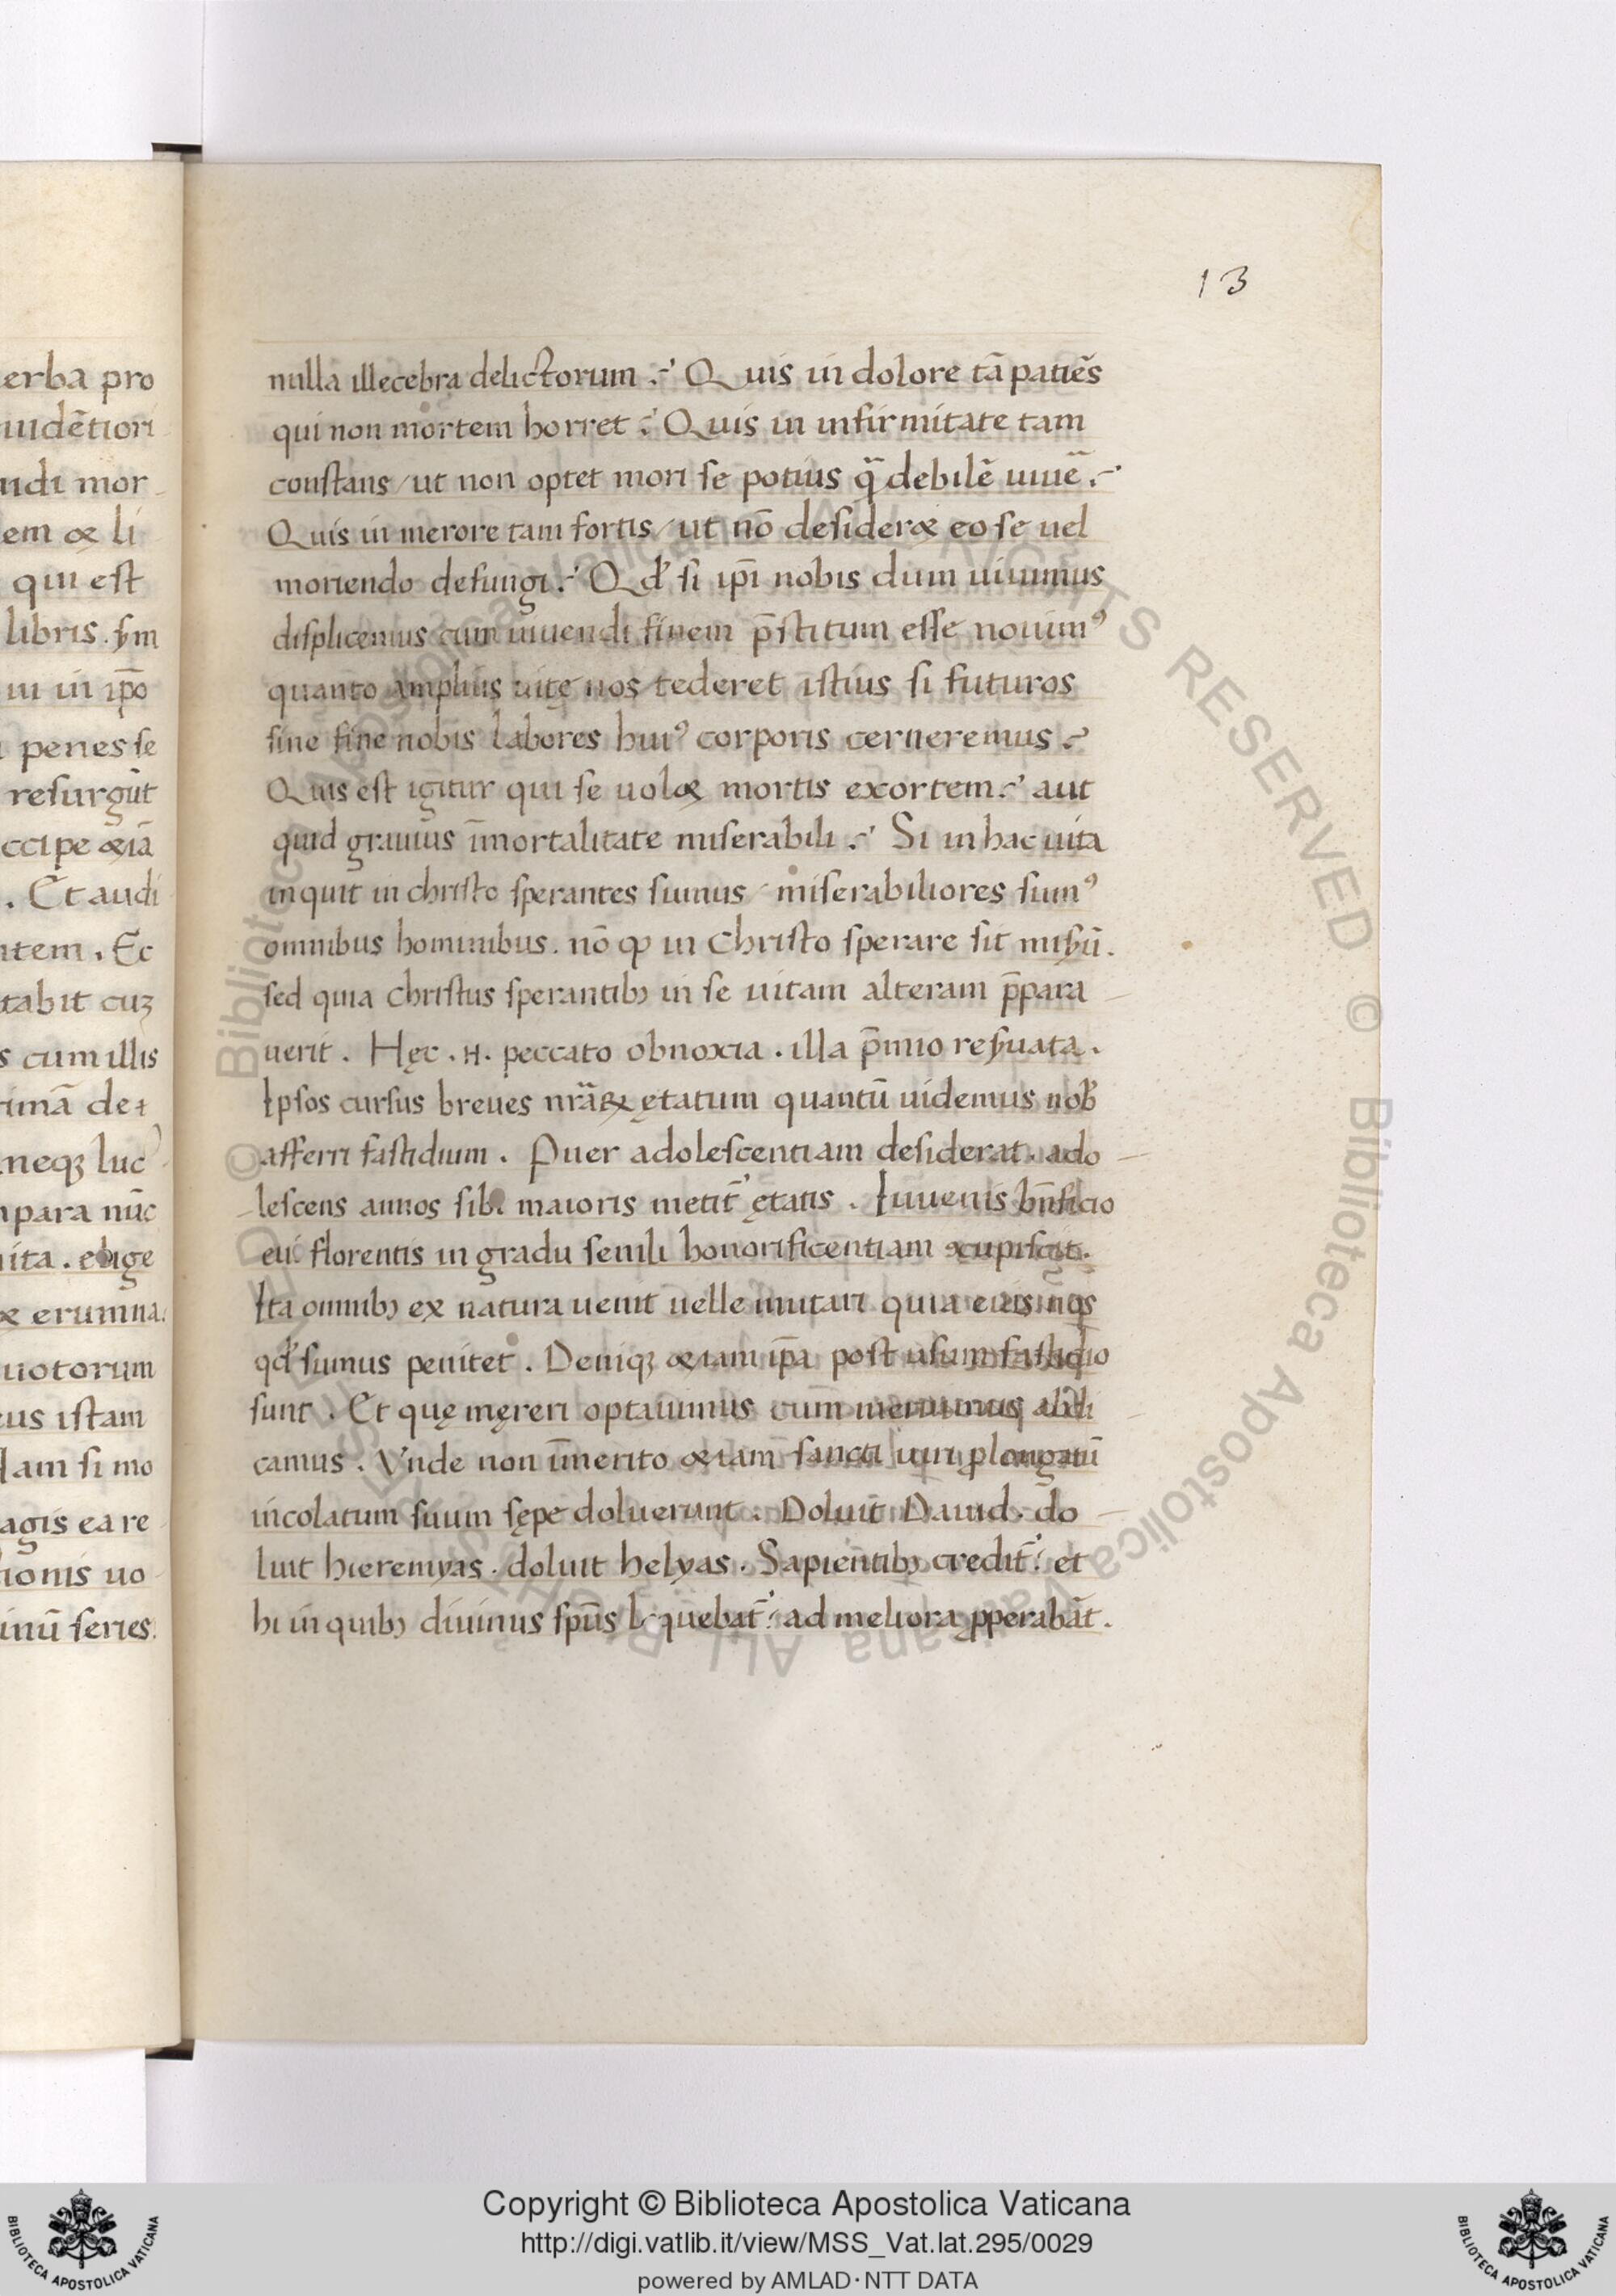 13
erba pro
uidētiori
udi mor
em & li
qui est
libris.
iu in ip̄o
penes se
resurgūt
ccipe &iā
. Et audi
ntem. Ec
tabit cuʒ
s cum illis
rimā de
neqʒ luc
para nūc
ita. elige
& erumna.
uotorum
us istam
Iam si mo
agis ea re
ionis uo
inū series.
nulla illecebra delictorum? Quis in dolore tā patiēs
qui non mortem horret? Quis in infirmitate tam
constans / ut non optet mori se potius q̄ debilē uiuē?
Quis in merore tam fortis / ut nō desider& eo se uel
moriendo defungi? Qd' si ip̄i nobis dum uiuimus
displicemus cum uiuendi finem p̄stitum esse nouimꝰ
quanto amplius uitę nos tederet istius si futuros
sine fine nobis labores huiꝰ corporis cerneremus?
Quis est igitur qui se uol& mortis exortem? aut
quid grauius īmortalitate miserabili? Si in hac uita
inquit in christo sperantes sumus / miserabiliores sumꝰ
omnibus hominibus. nō ꝙ in Christo sperare sit misȝū.
sed quia christus sperantibꝫ in se uitam alteram p̄para
uerit. Hęc .H. peccato obnoxia. illa p̄mio resȝuata.
Ipsos cursus breues nr̄aꝝ ętatum quantū uidemus nob
afferri fastidium. Puer adolescentiam desiderat. ado
lescens annos sibi maioris metit̄ ętatis. Iuuenis bn̄ficio
eui florentis in gradu senili honorificentiam ɔcupiscit.
Ita omnibꝫ ex natura uenit uelle mutari quia
qd' sumus penitet. Deniqʒ &iam ip̄a post usum fastidio
sunt. Et quę męreri optauimus cum meruimus abdi
camus. Vnde non īmerito &iam sancti uiri ꝓlongatū
incolatum suum sępe doluerunt. Doluit Dauid. do
luit hieremyas. doluit helyas. Sapientibꝫ credit̄. et
hi in quibꝫ diuinus sp̄us loquebat̄ ad meliora ꝓperabāt.
© Biblioteca Apostolica Vaticana ALL RIGHTS RESERVED
Copyright © Biblioteca Apostolica Vaticana
http://digi.vatlib.it/view/MSS_Vat.lat.295/0029
powered by AMLAD·NTT DATA
BIBLIOTECA APOSTOLICA VATICANA
BIBLIOTECA APOSTOLICA VATICANA